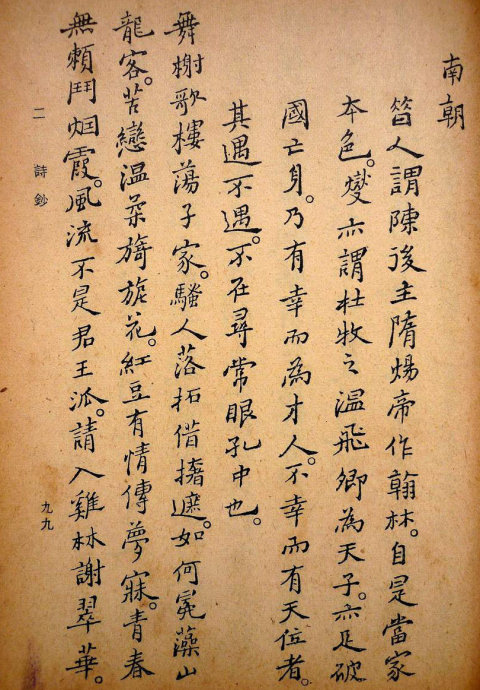 南朝
昔人謂陳後主隋煬帝作翰林。自是當家
本色。燮亦謂杜牧之温飛卿為天子。亦足破
國亡身。乃有幸而為才人。不幸而有天位者。
其遇不遇。不在尋常眼孔中也。
舞榭歌樓蕩子家。騷人落拓借遮。如何冕藻山
龍客。苦戀温柔旖旎花。紅豆有情傳夢寐。青春
無賴鬥烟霞。風流不是君王派。請入雞林謝翠華。
二 詩鈔
九九